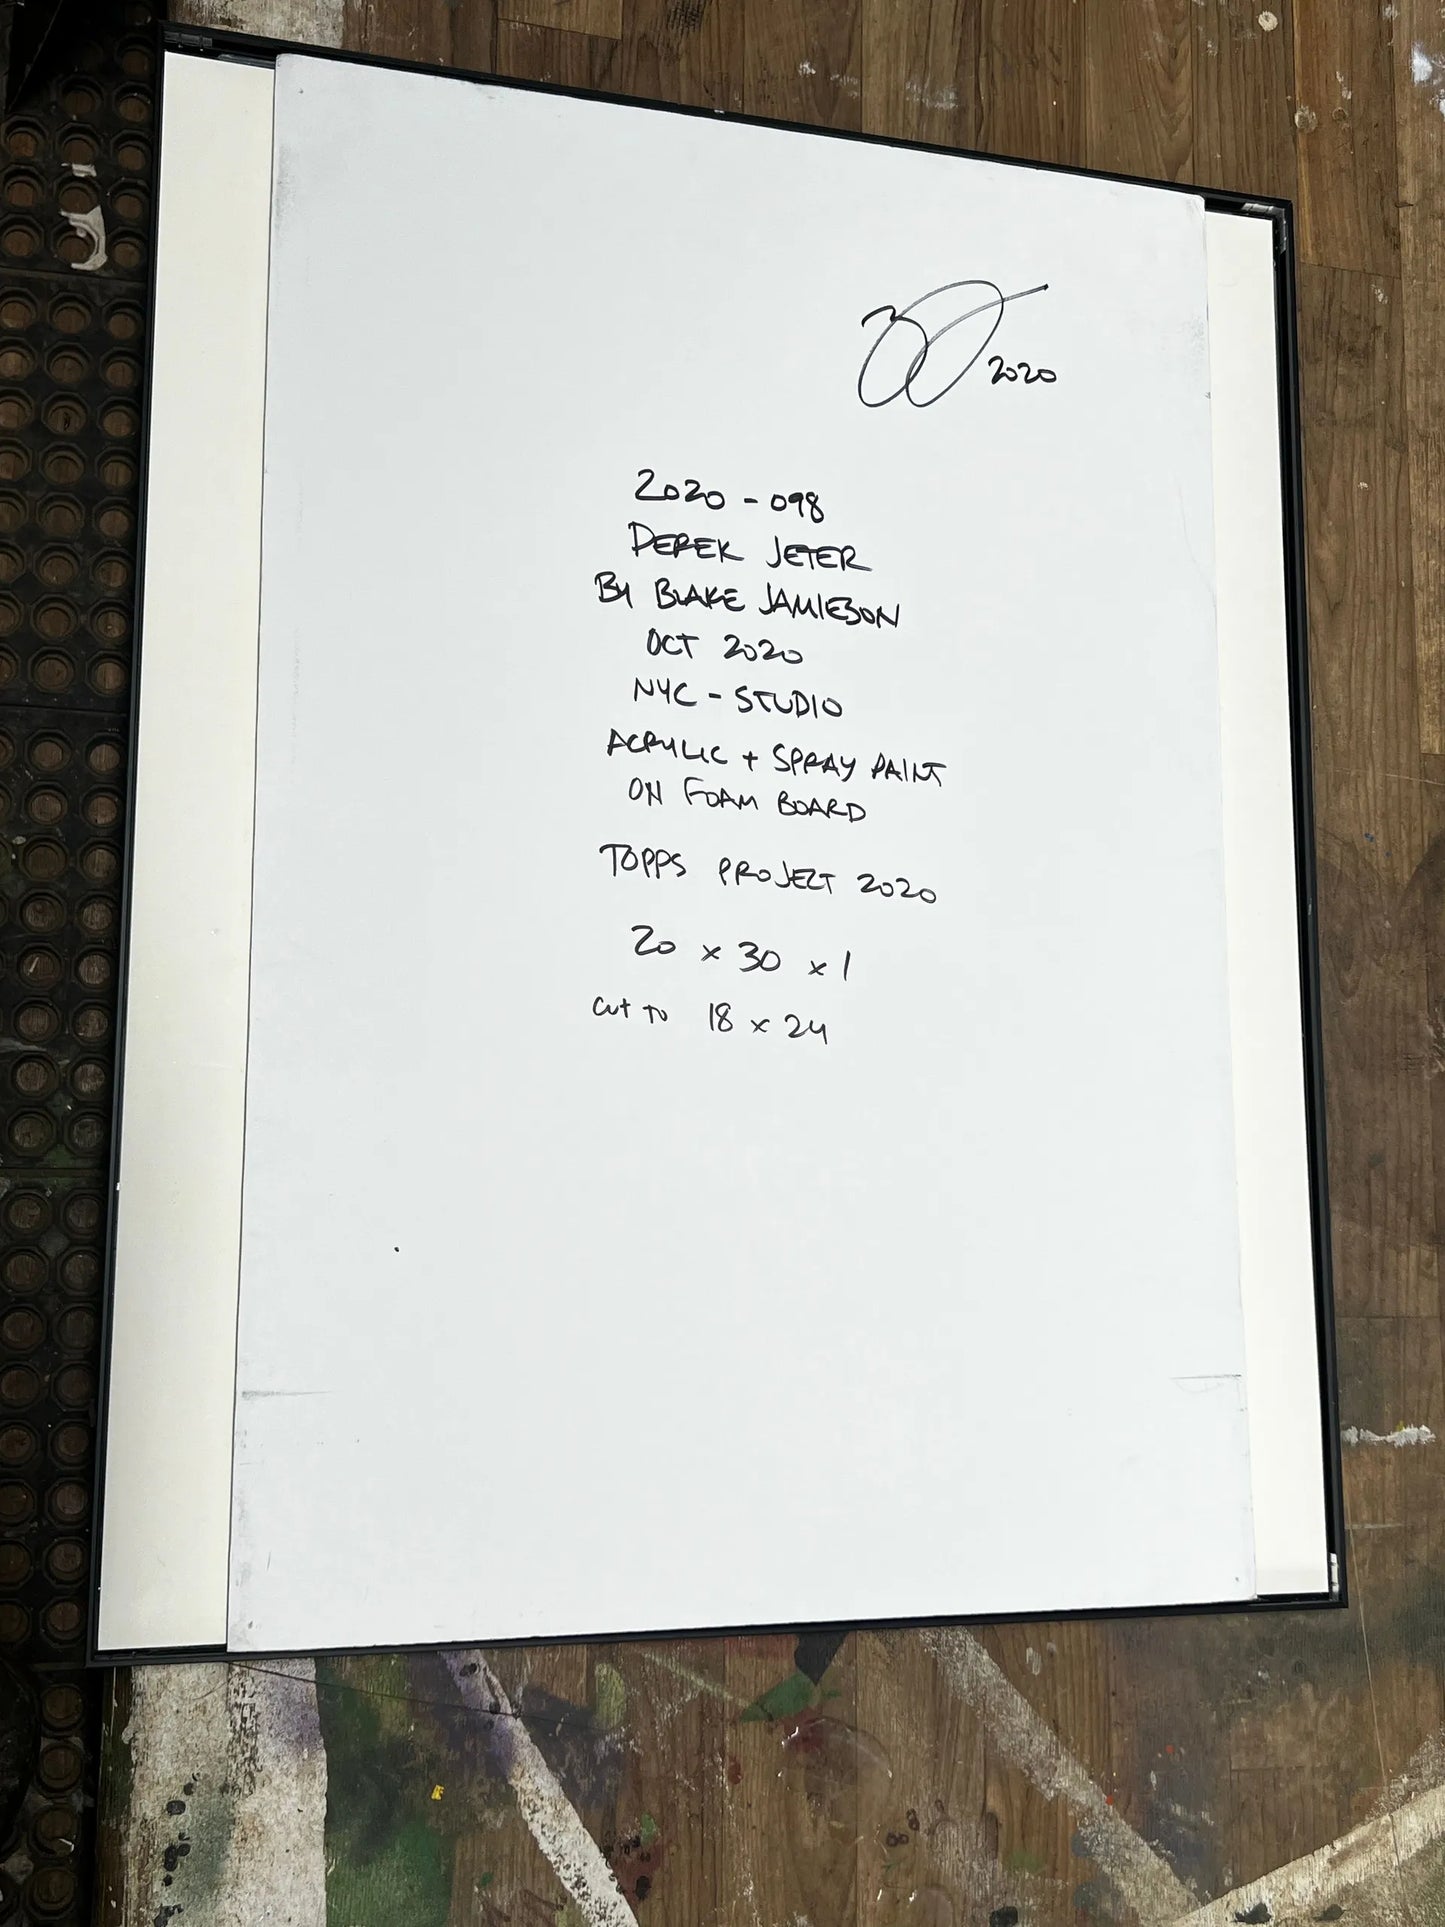 2020
2020 - 098
DEREK JETER
BY BLAKE JAMIESON
OCT 2020
NYC - STUDIO
ACRYLIC + SPRAY PAINT
ON FOAM BOARD
TOPPS PROJECT 2020
20 x 30 x 1
cut to 18 x 24